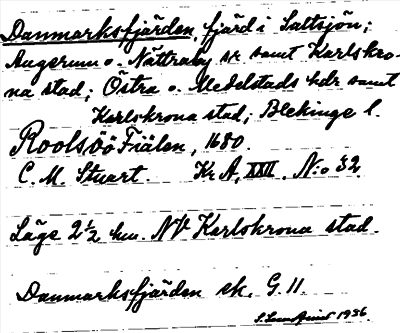 Danmarksfjärden, fjärd i Saltsjön;
Augerum o. Nättraby sr samt Karlskro-
na stad; Östra o. Medelstads hdr samt
Karlskrona stad; Blekinge l.
Roolsöö Fiälen, 1680.
C. M. Stuart. Kr A, XXII. N:o 32.
Läge 2 1/2 km. NV Karlskrona stad.
Danmarksfjärden ek. G. 11.
1936.